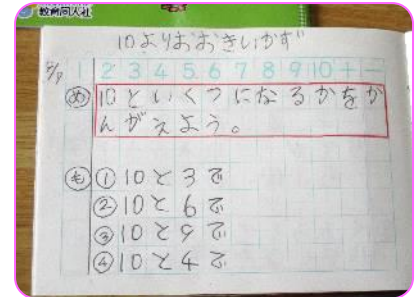 教育同人社
10よりおおきいかず
5/9
1 2 3 4 5 6 7 8 9 10 + −
め 10といくつになるかをか
んがえよう。
も ① 10と3で
② 10と6で
③ 10と5で
④ 10と4で